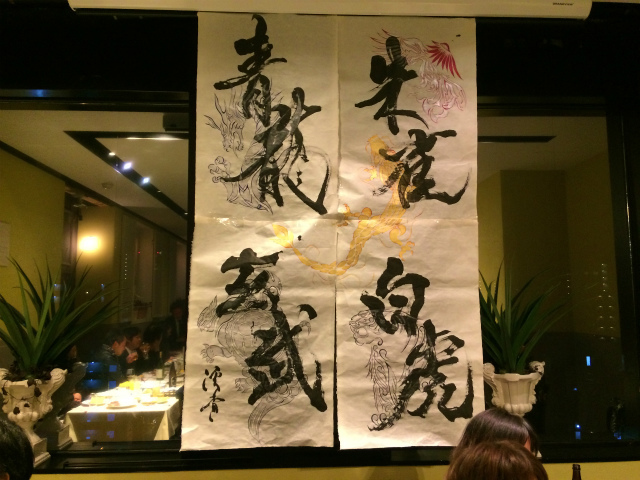 朱雀
白虎
青龍
玄武